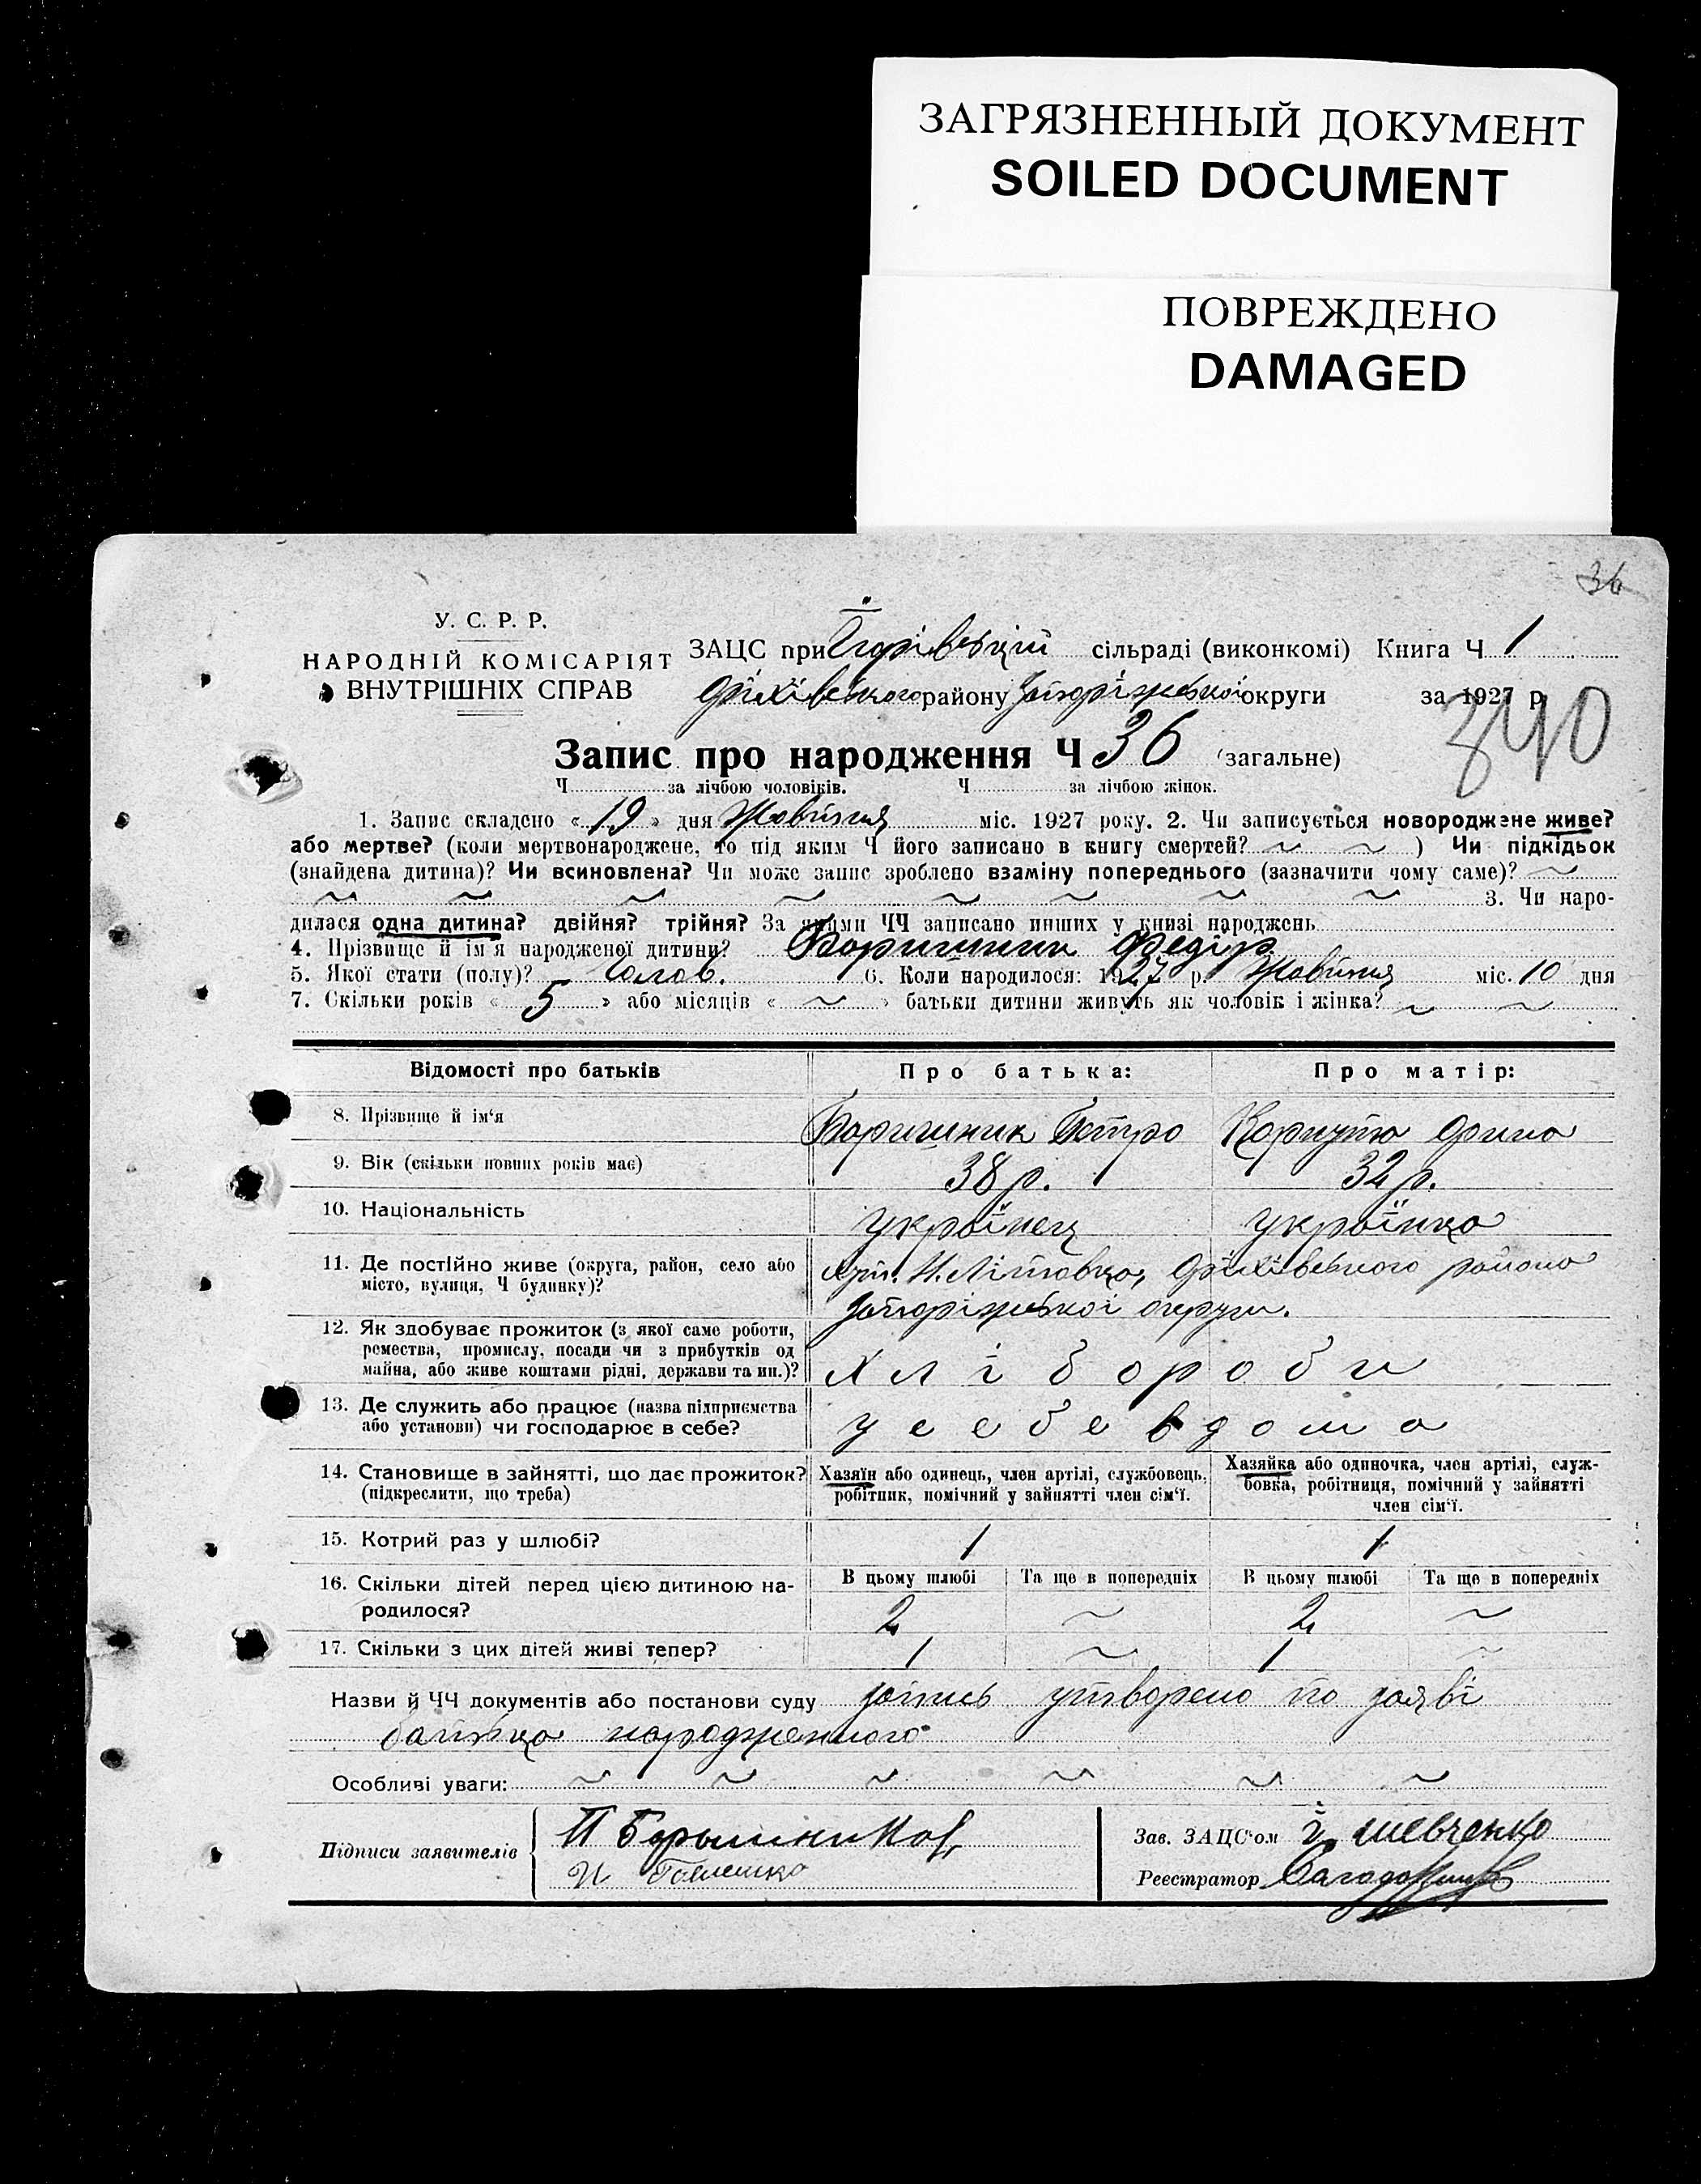 ЗАГРЯЗНЕННЫЙ ДОКУМЕНТ
SOILED DOCUMENT
ПОВРЕЖДЕНО
DAMAGED
36
У. С. Р. Р.
НАРОДНІЙ КОМІСАРІЯТ
ВНУТРІШНІХ СПРАВ
ЗАЦС при сільраді (виконкомі) Книга Ч 1
Оріхівського району Запоріжської округи за 1927 р.
340
Запис про народження Ч 36 (загальне)
Ч за лічбою чоловіків. Ч за лічбою жінок.
1. Запис складено « 19 » дня Жовтня міс. 1927 року. 2. Чи записується новороджене живе?
або мертве? (коли мертвонароджене, то під яким Ч його записано в книгу смертей? ~ ~ ) Чи підкідьок
(знайдена дитина)? Чи всиновлена? Чи може запис зроблено взаміну попереднього (зазначити чому саме)? ~
~ ~ ~ ~ ~ ~ ~ ~ 3. Чи наро-
дилася одна дитина? двійня? трійня? За якими ЧЧ записано инших у книзі народжень
4. Прізвище й ім'я народженої дитини? Боришник Федір
5. Якої стати (полу)? Чолов. 6. Коли народилося: 1927 р. Жовтня міс. 10 дня
7. Скільки років « 5 » або місяців « ~ » батьки дитини живуть як чоловік і жінка? ~ ~
Відомості про батьків Про батька: Про матір:
8. Прізвище й ім'я Боришник Петро Орина
9. Вік (скільки повних років має) 38 р. 32 р.
10. Національність українец українка
11. Де постійно живе (округа, район, село або місто, вулиця, Ч будинку)? хут. Н. Літовка, Оріхівського района
Запоріжської округи.
12. Як здобуває прожиток (з якої саме роботи,
ремества, промислу, посади чи з прибутків од
майна, або живе коштами рідні, держави та ин.)? Хлібороби
13. Де служить або працює (назва підприємства
або установи) чи господарює в себе? у себе вдома
14. Становище в зайнятті, що дає прожиток?
(підкреслити, що треба)
Хазяїн або одинець, член артілі, службовець,
робітник, помічний у зайнятті член сім'ї.
Хазяйка або одиночка, член артілі, служ-
бовка, робітниця, помічний у зайнятті
член сім'ї.
15. Котрий раз у шлюбі? 1 1
16. Скільки дітей перед цією дитиною на-
родилося?
В цьому шлюбі Та ще в попередніх В цьому шлюбі Та ще в попередніх
2 ~ 2 ~
17. Скільки з цих дітей живі тепер? 1 ~ 1 ~
Назви й ЧЧ документів або постанови суду запись утворено по заяві
батька народженного
Особливі уваги: ~ ~ ~ ~ ~ ~
Підписи заявителів
Зав. ЗАЦС'ом Шевченко
Реєстратор